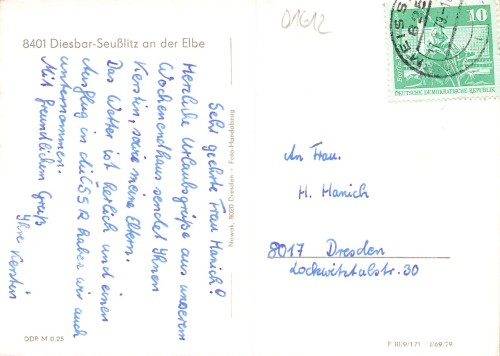 8401 Diesbar-Seußlitz an der Elbe
01612
Sehr geehrte Frau Hanich!
Herzliche Urlaubsgrüße aus unserem
Wochenendhaus sendet Ihnen
Kerstin, sowie meine Eltern.
Das Wetter ist herlich und einen
Ausflug in die ČSSR haben wir auch
unternommen.
Mit freundlichem Gruß
Ihre Kerstin
DDR M 0,25
Nowak, 8020 Dresden – Foto-Handabzug
10
DEUTSCHE DEMOKRATISCHE REPUBLIK
An Frau.
H. Hanich
8017 Dresden
Lockwitztalstr. 30
F III/9/171 J/69/79